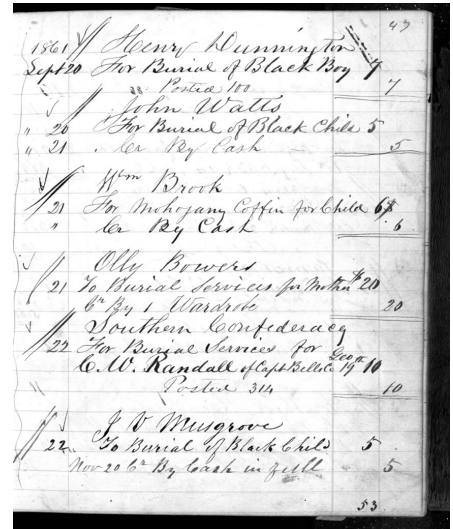 47
1861 Henry Dunnington
Sept 20 For Burial of Black Boy 7
Posted 100 7
John Watts
" 20 For Burial of Black Child 5
" 21 . Cr By Cash 5
Wm Brook
21 For Mohogany Coffin for Child 6
" Cr By Cash 6
Olly Bowers
21 To Burial Services for Mother $20
Cr By 1 Wardrobe 20
Southern Confederacy
22 For Burial Services for
C. W. Randall of Capt Bells Co Geo 19th 10
" Posted 314 10
J V Musgrove
22 To Burial of Black Child 5
Nov 20 Cr By Cash in full 5
53